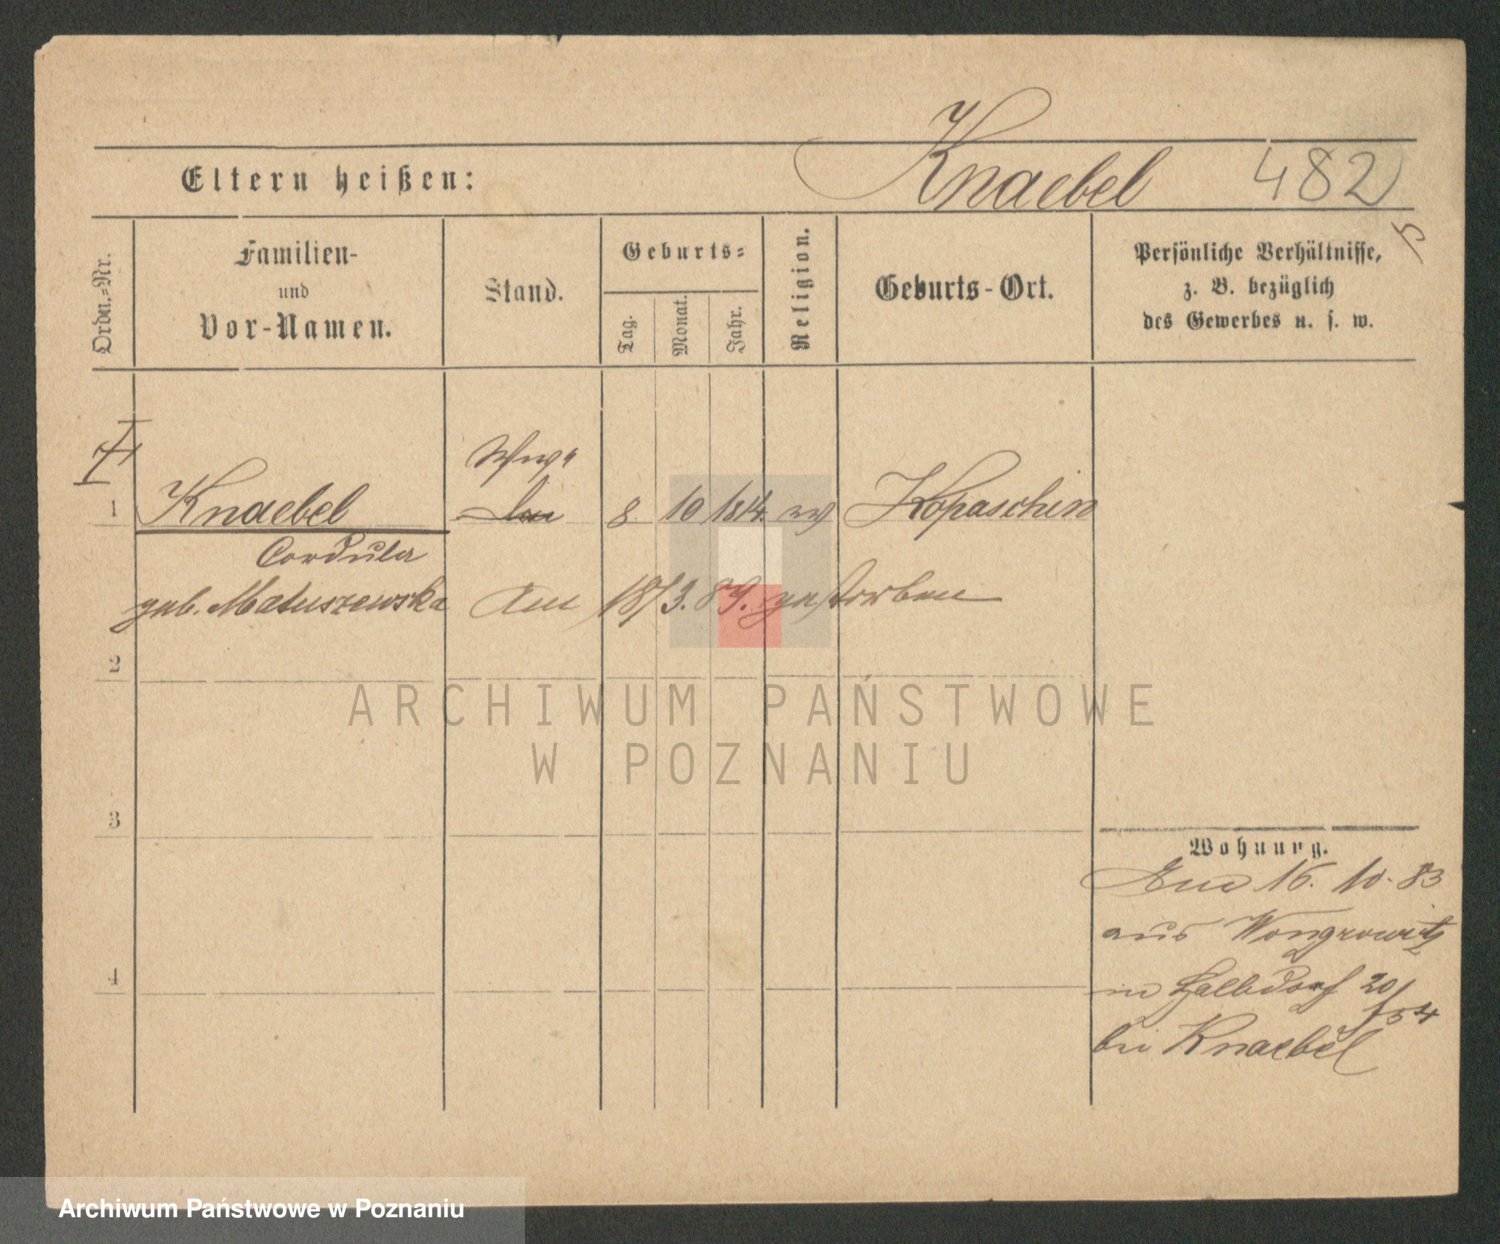 Knaebel 482
Eltern heißen:
Ordn.-Nr.
Familien-
und
Vor-Namen.
Stand.
Geburts-
Tag.
Monat.
Jahr.
Religion.
Geburts-Ort.
Persönliche Verhältnisse,
z. B. bezüglich
des Gewerbes u. s. w.
1 Knaebel 8 10 1814 Kopaschin
Cordula
geb. Matuszewska Am 18/3. 89. gestorben
2
3
4
Wohnung.
16. 10. 83
aus Wongrowitz
in Halbdorf 20/
bei Knaebel
ARCHIWUM PAŃSTWOWE
W POZNANIU
Archiwum Państwowe w Poznaniu